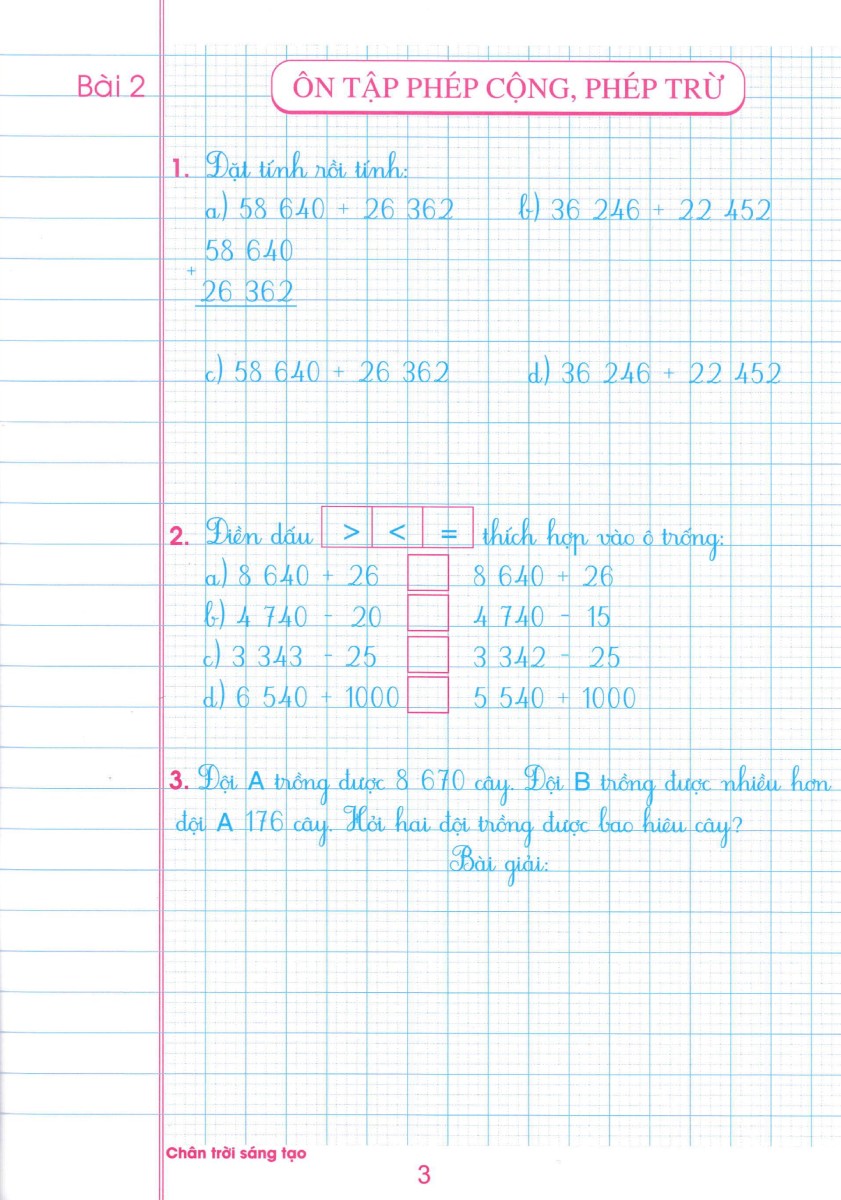 Bài 2
ÔN TẬP PHÉP CỘNG, PHÉP TRỪ
1. Đặt tính rồi tính:
a) 58 640 + 26 362 b) 36 246 + 22 452
58 640
+
26 362
c) 58 640 + 26 362 d) 36 246 + 22 452
2. Điền dấu > < = thích hợp vào ô trống:
a) 8 640 + 26 8 640 + 26
b) 4 740 - 20 4 740 - 15
c) 3 343 - 25 3 342 - 25
d) 6 540 + 1000 5 540 + 1000
3. Đội A trồng được 8 670 cây. Đội B trồng được nhiều hơn
đội A 176 cây. Hỏi hai đội trồng được bao hiêu cây?
Bài giải:
Chân trời sáng tạo
3